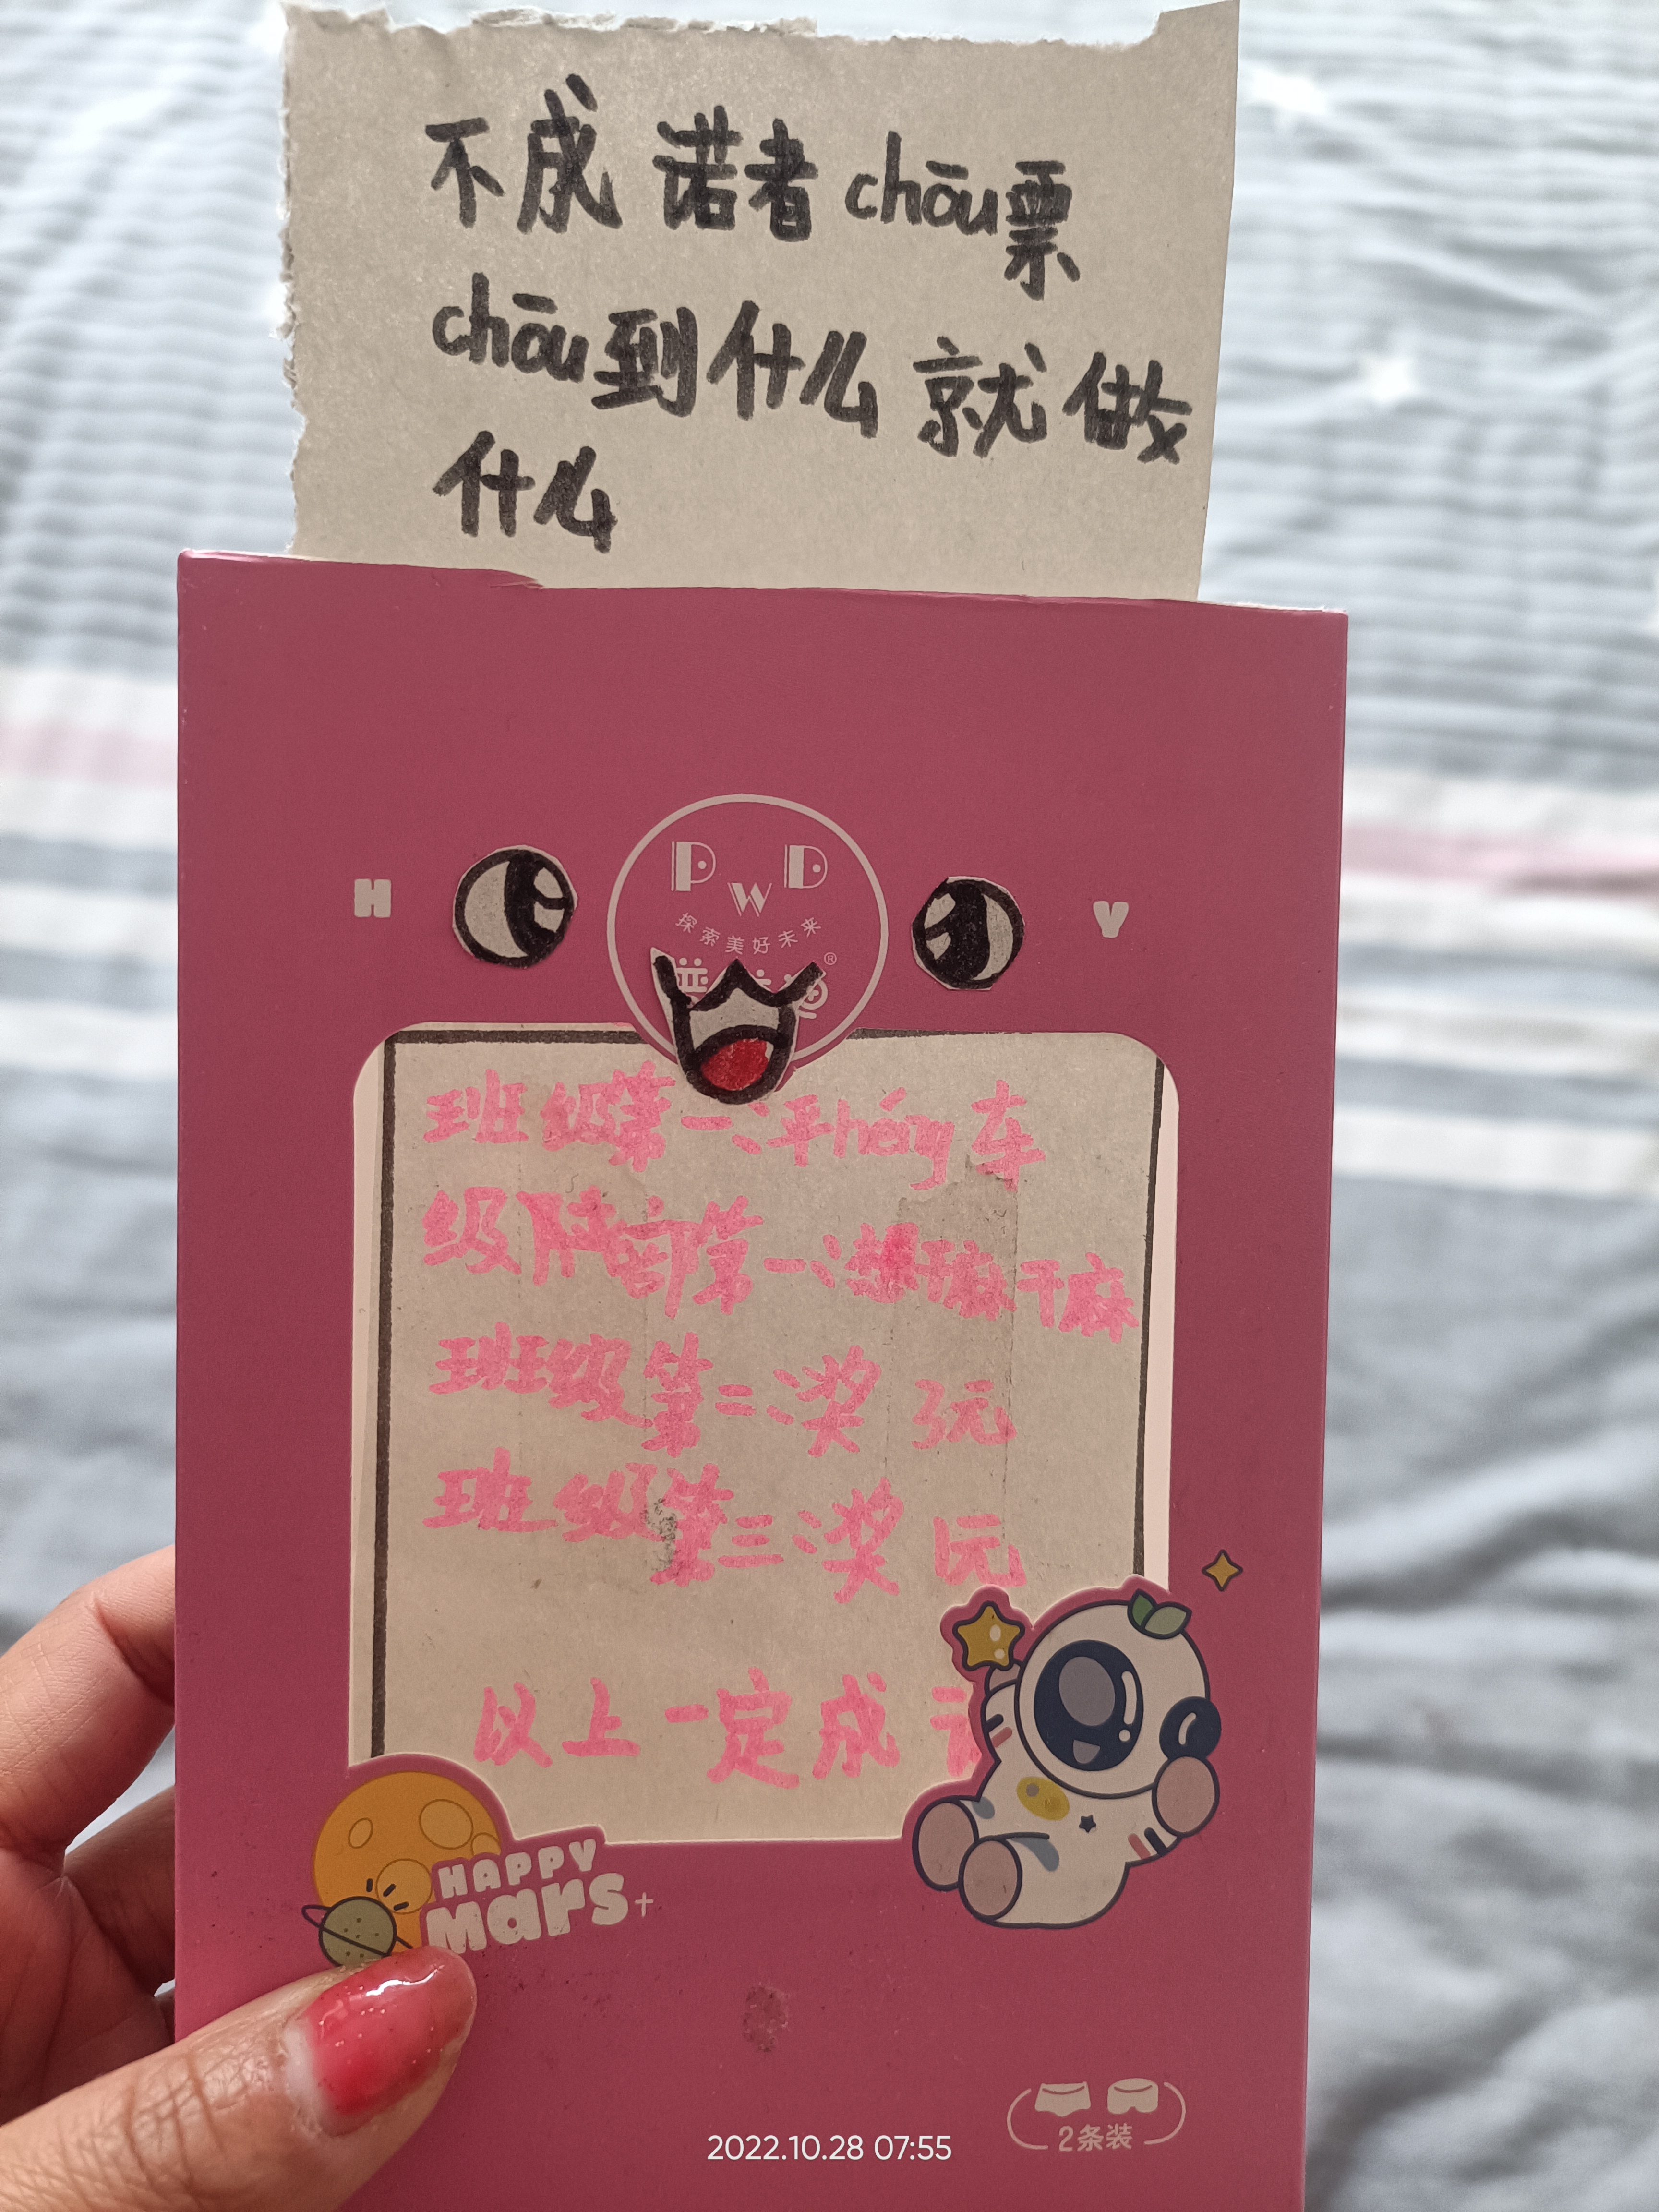 不成诺者chōu票
chōu到什么就做
什么
H
PWD
Y
探索美好未来
®
班级第一:平héng车
级部第一:想干嘛干嘛
班级第二:奖 元
班级第三:奖 元
以上一定成
HAPPY
mars
2条装
2022.10.28 07:55